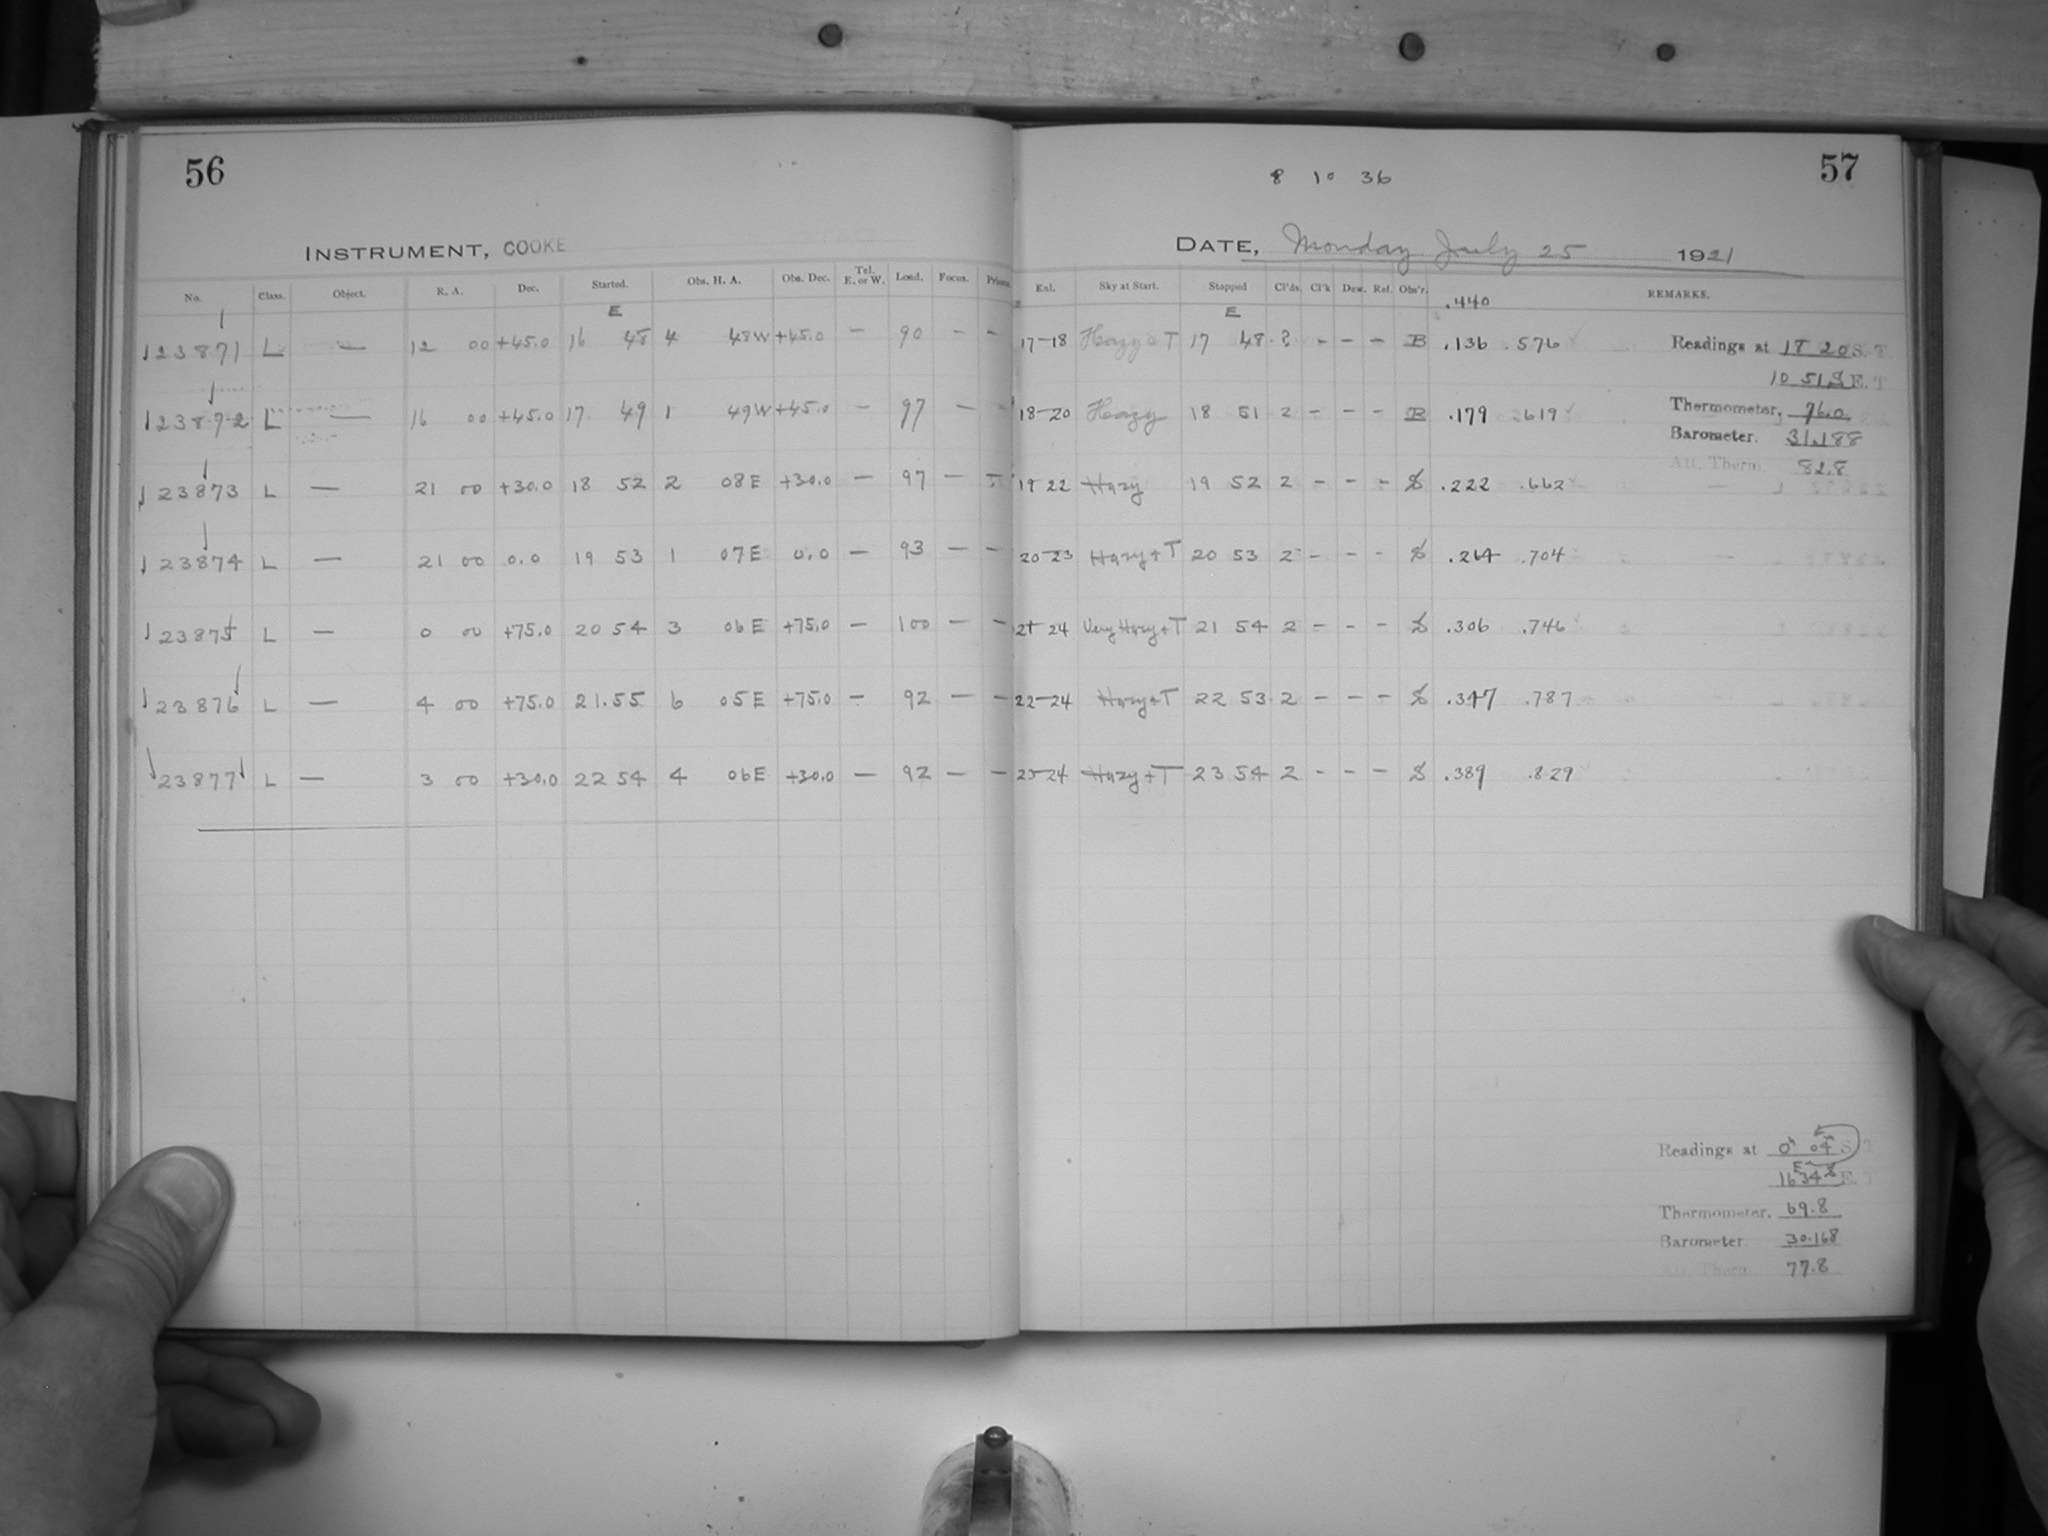 56
INSTRUMENT, COOKE
No. Class. Object. R. A. Dec. Started. Obs. H. A. Obs. Dec. Tel. E. or W. Load. Focus. Prisms.
E
23871 L — 12 00 +45.0 16 48 4 48W +45.0 — 90 — —
23872 L — 16 00 +45.0 17 49 1 49W +45.0 — 97 — —
23873 L — 21 00 +30.0 18 52 2 08E +30.0 — 97 — —
23874 L — 21 00 0.0 19 53 1 07E 0.0 — 93 — —
23875 L — 0 00 +75.0 20 54 3 06E +75.0 — 100 — —
23876 L — 4 00 +75.0 21.55 6 05E +75.0 — 92 — —
23877 L — 3 00 +30.0 22 54 4 06E +30.0 — 92 — —
57
8 10 36
DATE, Monday July 25 1921
Exl. Sky at Start. Stopped Cl'ds. Cl'k Dew. Rel. Obs'r. .440 REMARKS.
E
17-18 Hazy + T 17 48 2 - - - B .136 .576
18-20 Hazy 18 51 2 - - - B .179 .619
19 22 Hazy 19 52 2 - - - S .222 .662
20-23 Hazy + T 20 53 2 - - - S .264 .704
21 24 Very Hazy + T 21 54 2 - - - S .306 .746
22-24 Hazy + T 22 53 2 - - - S .347 .787
23-24 Hazy + T 23 54 2 - - - S .389 .829
Readings at 18 20 S. T.
10 51 E. T.
Thermometer, 76.0
Barometer. 31.188
Att. Therm. 82.8
Readings at 0 04 S. T.
16 34 E. T.
Thermometer. 69.8
Barometer. 30.168
Att. Therm. 77.8